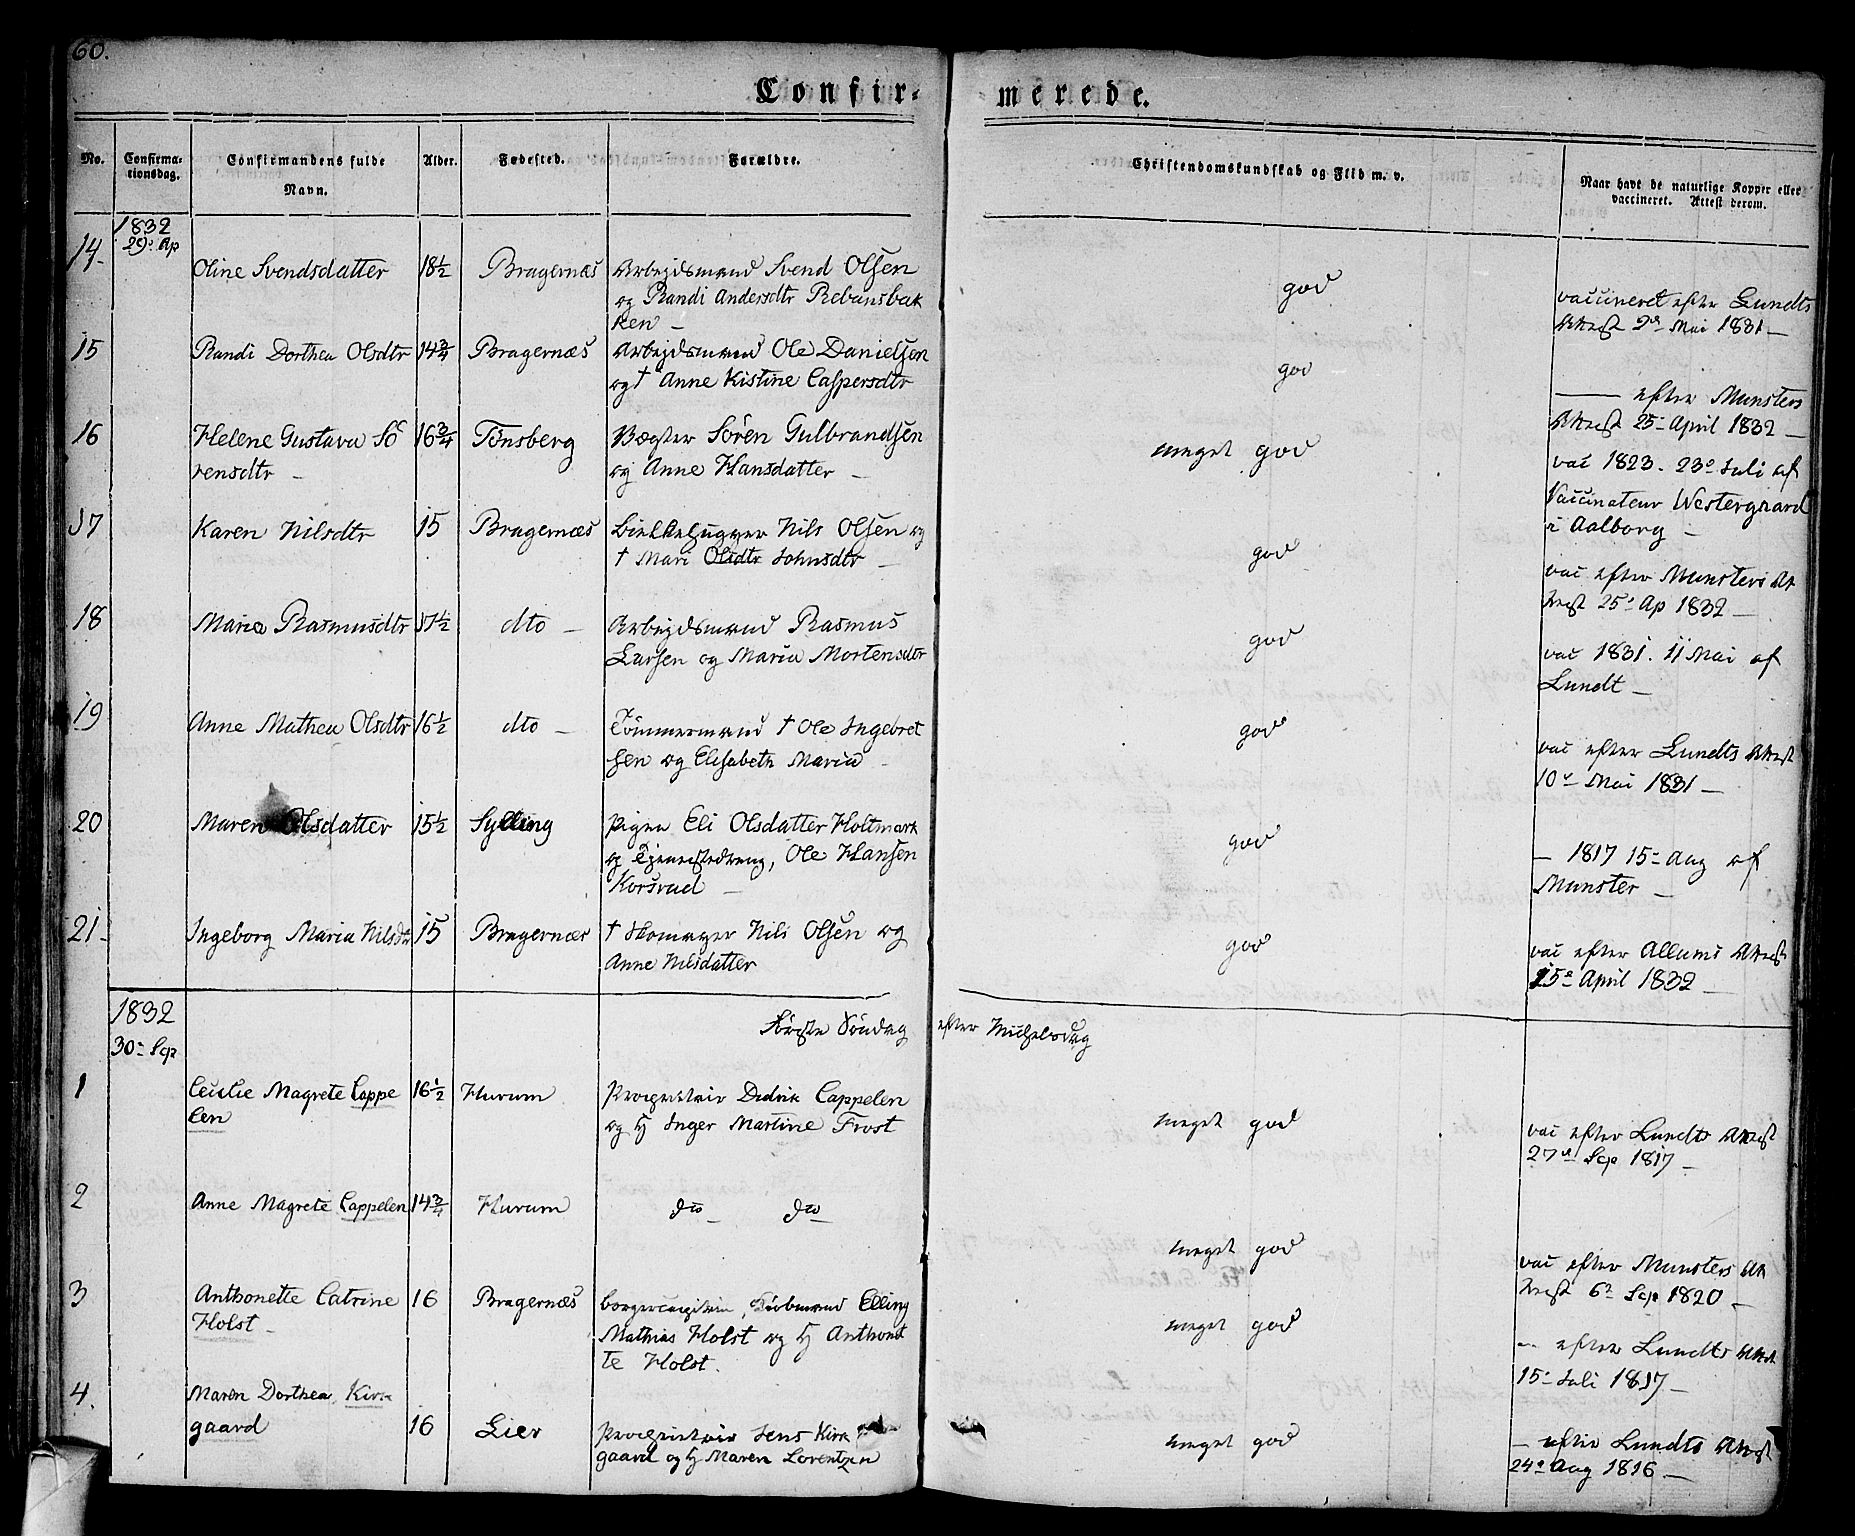 60.
Confir-
merede.
No.
Confirma-
tionsdag.
Confirmandens fulde
Navn.
Alder.
Fødested.
Forældre.
Christendomskundskab og Flid m. v.
Naar havt de naturlige Kopper eller
vaccineret. Attest derom.
1832
29de Ap
14
Oline Svendsdatter
18½
Bragernæs
Arbejdsmand Svend Olsen
og Randi Andersdtr Rebansbak
ken -
god
vaccineret efter Lundts
Attest 9de Mai 1831 -
15
Randi Dorthea Olsdtr
14¾
Bragernæs
Arbejdsmand Ole Danielsen
og † Anne Kistine Caspersdtr
god
— efter Munsters
Attest 25- April 1832 -
16
Helene Gustava Sö
rensdtr -
16¾
Tønsberg
Bøgter Sören Gulbrandsen
og Anne Hansdatter -
meget god
vac 1823. 23de Juli af
Vaccinateur Westergaard
i Aalborg -
17
Karen Nilsdtr
15
Bragernæs
Blokkehugger Nils Olsen og
† Mari Olsdtr Johnsdtr -
god
vac efter Munsters At
test 25de Ap 1832 -
18
Maria Rasmusdtr
17½
dto -
Arbejdsmand Rasmus
Larsen og Maria Mortensdtr
god
vac 1831. 11 Mai af
Lundt -
19
Anne Mathea Olsdtr
16½
dto -
Tömmermand † Ole Ingebret
sen og Elisabeth Maria -
god
vac efter Lundts Attest
10de Mai 1831 -
20
Maren Olsdatter
15½
Sylling
Pigen Eli Olsdatter Holtmark
og Tjenestedreng, Ole Hansen
Korsrud -
god
- 1817 15- Aug af
Munster -
21-
Ingeborg Maria Nilsdtr
15
Bragernæs
† Skomager Nils Olsen og
Anne Nilsdatter
god
vac efter Allums Attest
15de April 1832 -
1832
30- Sep
Förste Söndag
efter Michelsdag
1
Cecilie Magrete Cappe
len
16½
Hurum
Proprietair Didrik Cappelen
og H Inger Martine Frost
meget god
vac efter Lundts Attest
27de Sep 1817 -
2
Anne Magrete Cappelen
14¾
Hurum
do - do -
meget god
vac efter Munsters At
test 6te Sep 1820 -
3
Anthonette Catrine
Holst -
16
Bragernæs
borgercapitain, Kiöbmand Elling
Mathias Holst og H Anthonet
te Holst.
meget god
- efter Lundts Attest
15- Juli 1817 -
4.
Maren Dorthea Kirk
gaard
16
Lier
Proprietair Jens Kirk
gaard og H Maren Lorentzen
meget god
- efter Lundts Attest
24de Aug 1816 -